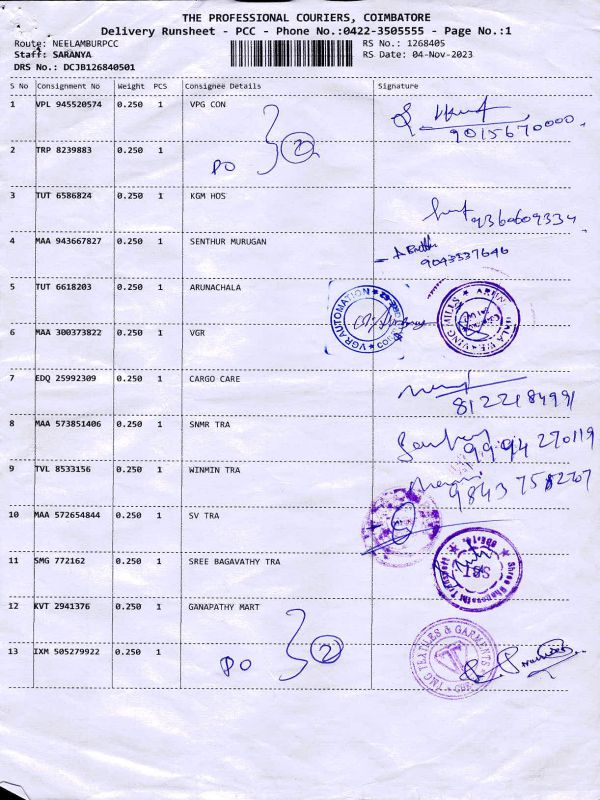 THE PROFESSIONAL COURIERS, COIMBATORE
Delivery Runsheet - PCC - Phone No.:0422-3505555 - Page No.:1
Route: NEELAMBURPCC RS No.: 1268405
Staff: SARANYA RS Date: 04-Nov-2023
DRS No.: DCJB126840501
S No Consignment No Weight PCS Consignee Details Signature
1 VPL 945520574 0.250 1 VPG CON
9015670000
2 TRP 8239883 0.250 1
PO 2
3 TUT 6586824 0.250 1 KGM HOS
9360609334
4 MAA 943667827 0.250 1 SENTHUR MURUGAN
9043337646
5 TUT 6618203 0.250 1 ARUNACHALA
VGR AUTOMATION
6 MAA 300373822 0.250 1 VGR
7 EDQ 25992309 0.250 1 CARGO CARE
8122184991
8 MAA 573851406 0.250 1 SNMR TRA
9994270119
9 TVL 8533156 0.250 1 WINMIN TRA
10 MAA 572654844 0.250 1 SV TRA
11 SMG 772162 0.250 1 SREE BAGAVATHY TRA
12 KVT 2941376 0.250 1 GANAPATHY MART
13 IXM 505279922 0.250 1
PO 2
TMG TEXTILES & GARMENTS